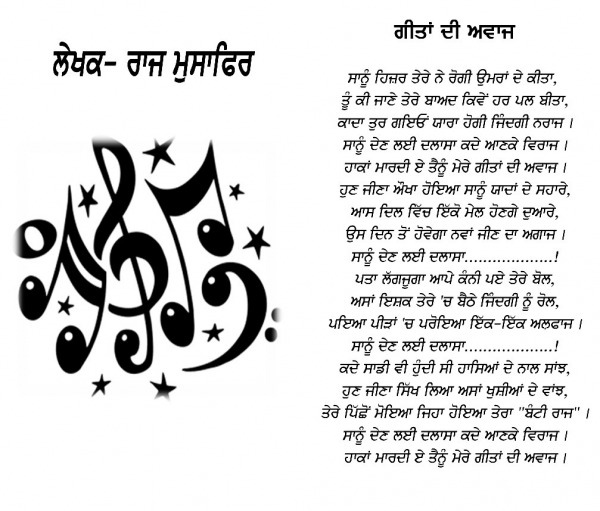 ਲੇਖਕ- ਰਾਜ ਮੁਸਾਫਿਰ
ਗੀਤਾਂ ਦੀ ਅਵਾਜ
ਸਾਨੂੰ ਹਿਜ਼ਰ ਤੇਰੇ ਨੇ ਰੋਗੀ ਉਮਰਾਂ ਦੇ ਕੀਤਾ,
ਤੂੰ ਕੀ ਜਾਣੇ ਤੇਰੇ ਬਾਅਦ ਕਿਵੇਂ ਹਰ ਪਲ ਬੀਤਾ,
ਕਾਦਾ ਤੁਰ ਗਇਓਂ ਯਾਰਾ ਹੋਗੀ ਜਿੰਦਗੀ ਨਰਾਜ ।
ਸਾਨੂੰ ਦੇਣ ਲਈ ਦਲਾਸਾ ਕਦੇ ਆਣਕੇ ਵਿਰਾਜ ।
ਹਾਕਾਂ ਮਾਰਦੀ ਏ ਤੈਨੂੰ ਮੇਰੇ ਗੀਤਾਂ ਦੀ ਅਵਾਜ ।
ਹੁਣ ਜੀਣਾ ਔਖਾ ਹੋਇਆ ਸਾਨੂੰ ਯਾਦਾਂ ਦੇ ਸਹਾਰੇ,
ਆਸ ਦਿਲ ਵਿੱਚ ਇੱਕੋ ਮੇਲ ਹੋਣਗੇ ਦੁਆਰੇ,
ਉਸ ਦਿਨ ਤੋਂ ਹੋਵੇਗਾ ਨਵਾਂ ਜੀਣ ਦਾ ਅਗਾਜ ।
ਸਾਨੂੰ ਦੇਣ ਲਈ ਦਲਾਸਾ...................!
ਪਤਾ ਲੱਗਜੂਗਾ ਆਪੇ ਕੰਨੀ ਪਏ ਤੇਰੇ ਬੋਲ,
ਅਸਾਂ ਇਸ਼ਕ ਤੇਰੇ 'ਚ ਬੈਠੇ ਜਿੰਦਗੀ ਨੂੰ ਰੋਲ,
ਪਇਆ ਪੀੜਾਂ 'ਚ ਪਰੋਇਆ ਇੱਕ-ਇੱਕ ਅਲਫਾਜ ।
ਸਾਨੂੰ ਦੇਣ ਲਈ ਦਲਾਸਾ...................!
ਕਦੇ ਸਾਡੀ ਵੀ ਹੁੰਦੀ ਸੀ ਹਾਸਿਆਂ ਦੇ ਨਾਲ ਸਾਂਝ,
ਹੁਣ ਜੀਣਾ ਸਿੱਖ ਲਿਆ ਅਸਾਂ ਖੁਸ਼ੀਆਂ ਦੇ ਵਾਂਝ,
ਤੇਰੇ ਪਿੱਛੋਂ ਮੋਇਆ ਜਿਹਾ ਹੋਇਆ ਤੇਰਾ "ਬੰਟੀ ਰਾਜ" ।
ਸਾਨੂੰ ਦੇਣ ਲਈ ਦਲਾਸਾ ਕਦੇ ਆਣਕੇ ਵਿਰਾਜ ।
ਹਾਕਾਂ ਮਾਰਦੀ ਏ ਤੈਨੂੰ ਮੇਰੇ ਗੀਤਾਂ ਦੀ ਅਵਾਜ ।